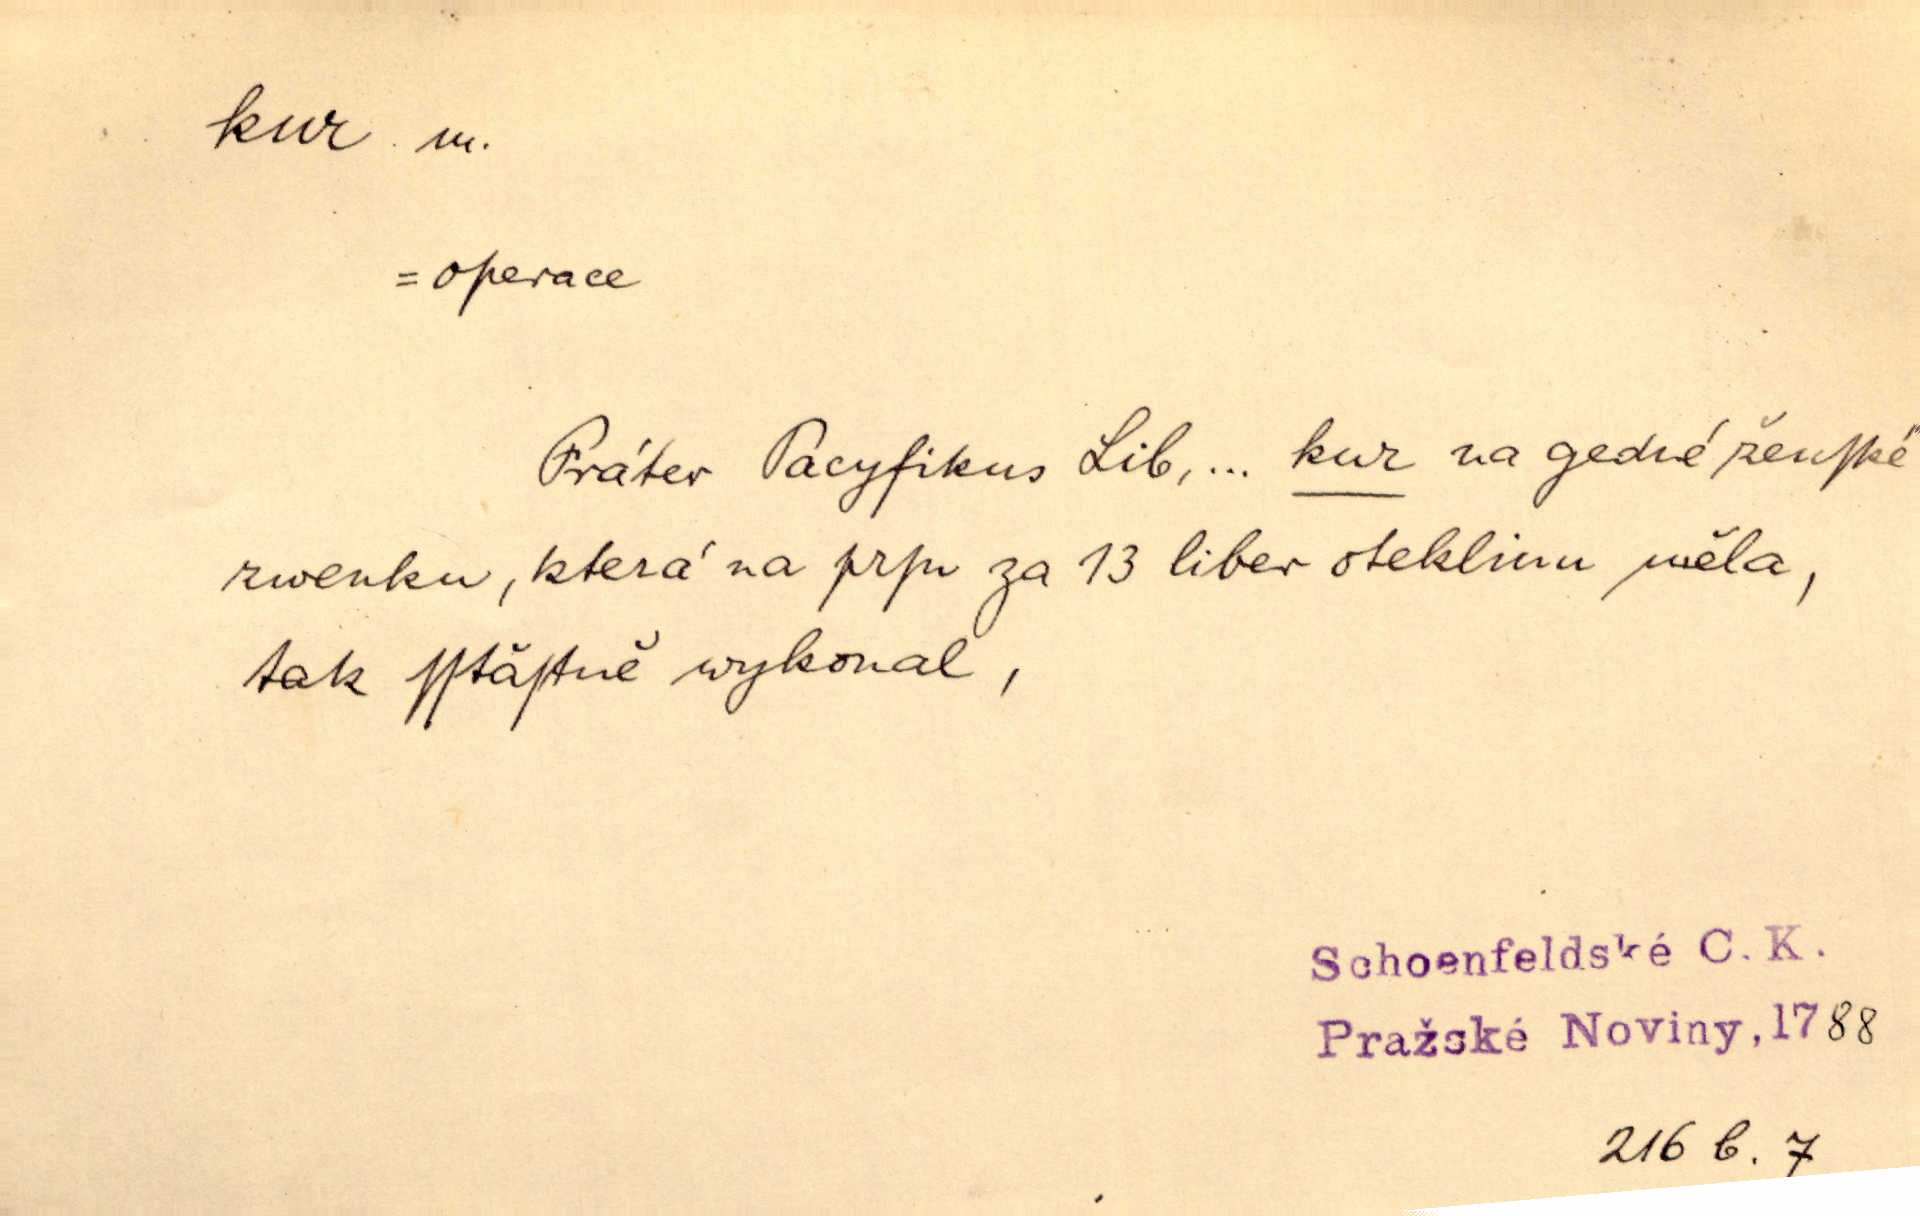 kur m.
= operace
Fráter Pacyfikus Lib, ... kur na gedné ženské
zwenku, která na prsu za 13 liber oteklinu měla,
tak sstästně wykonal,
Schoenfeldské C. K.
Pražské Noviny, 1788
216 b. 7